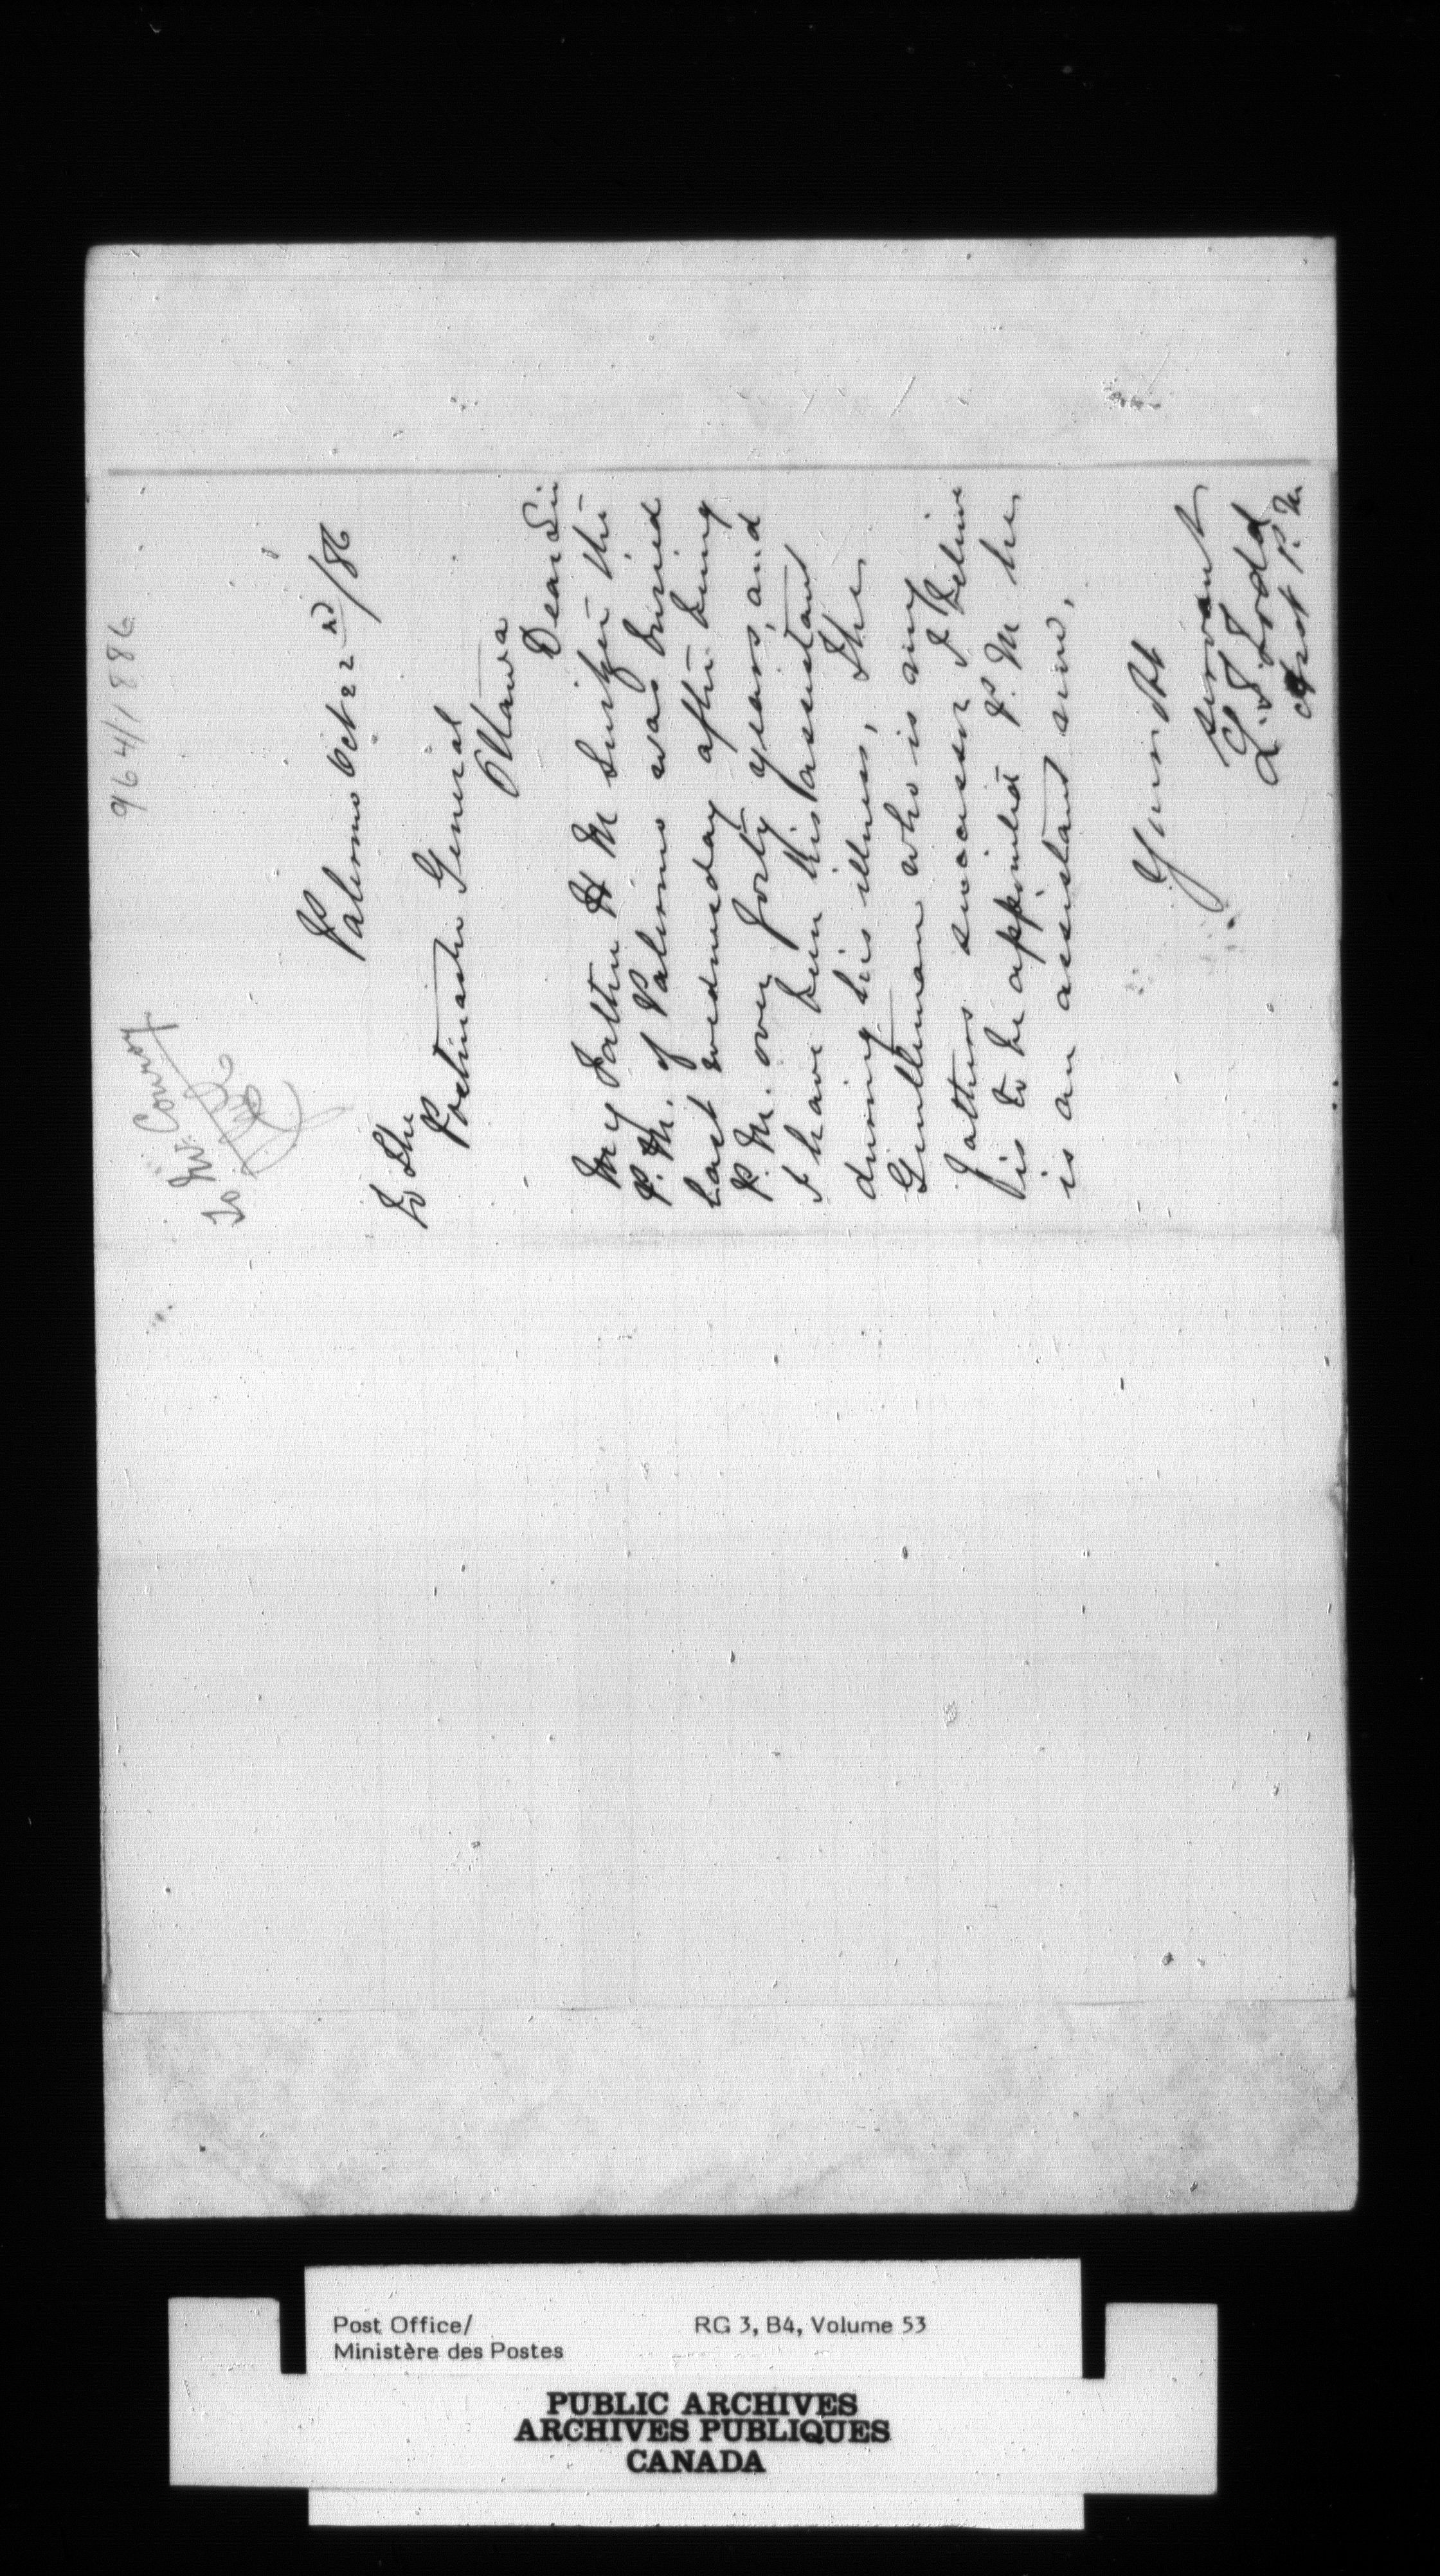 964/1886
Mr. Conroy
To
Palermo Oct 22nd/86
To The
Postmaster General
Ottawa
Dear Sir
My Father H M Switzer the
P. M. of Palermo was buried
last wednesday after being
P. M. over forty years, and
I have been his assistant
during his illness, The
Gentleman who is my
Fathers successor I believe
is to be appointed P. M he
is an assistant now,
Your Obt
Servant
Asst P. M
Post Office/
Ministère des Postes
RG 3, B4, Volume 53
PUBLIC ARCHIVES
ARCHIVES PUBLIQUES
CANADA